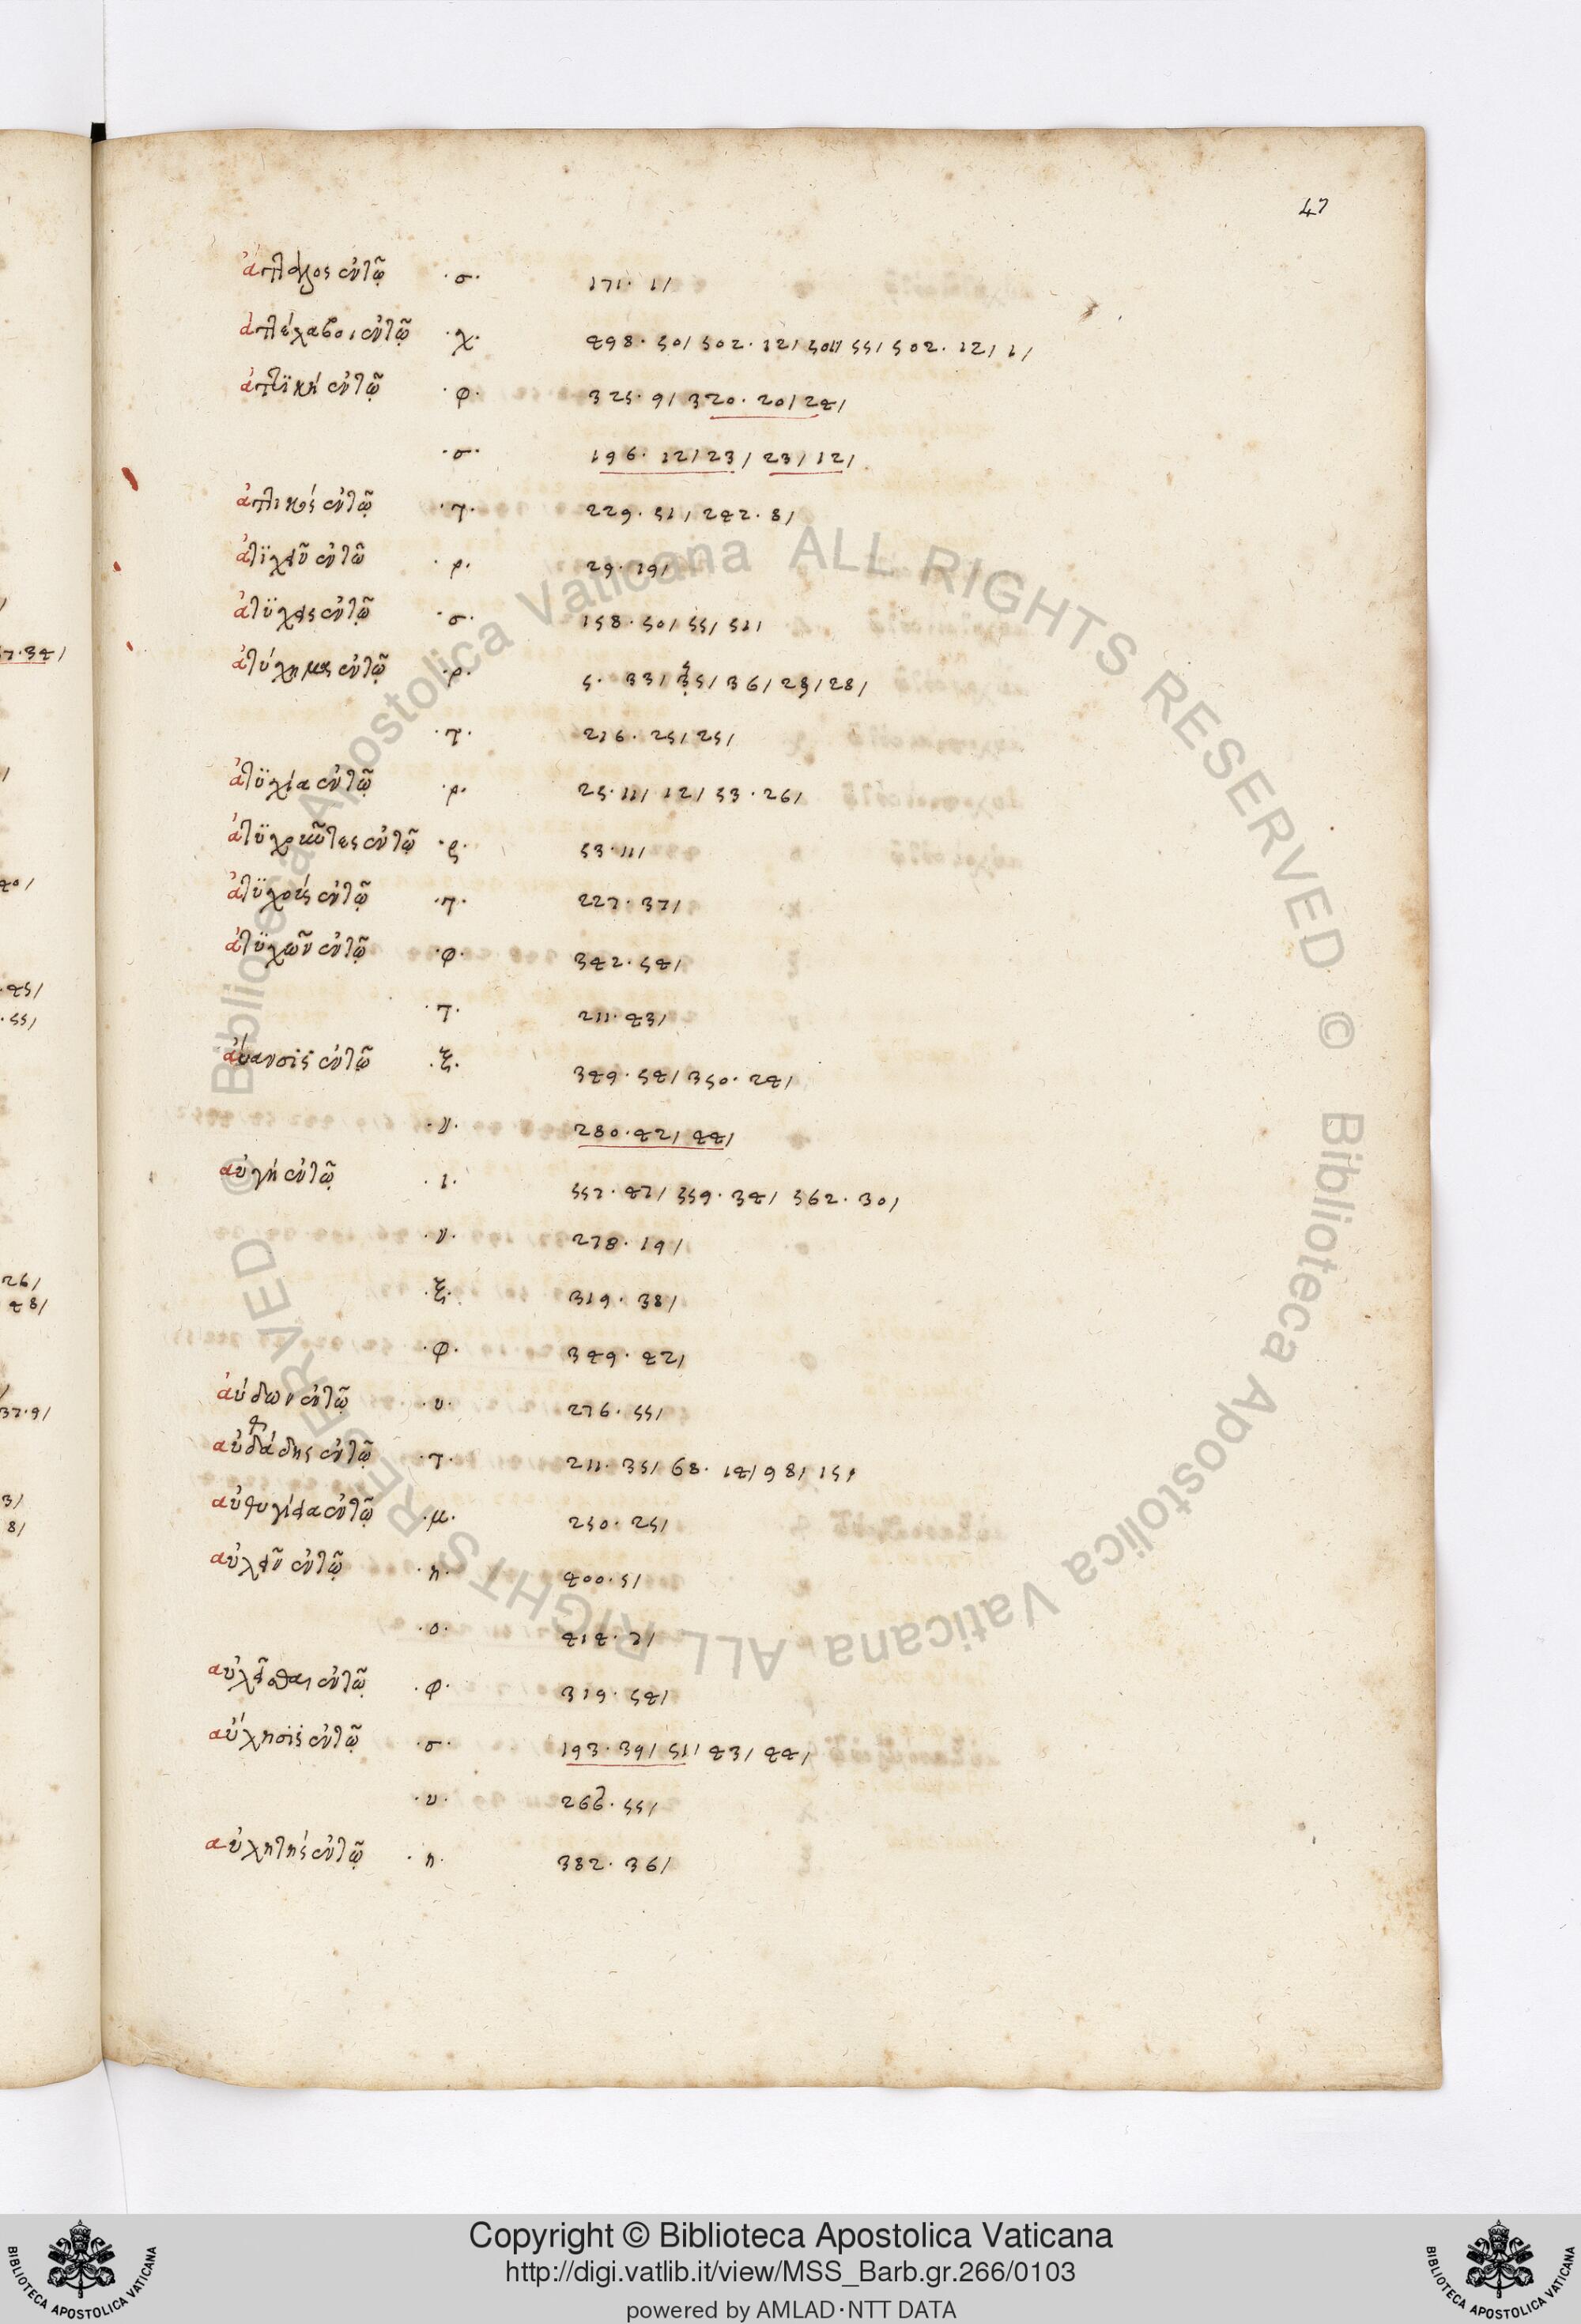 47
ἄτταλος ἐν τῷ ·σ· 171· 1/
ἐν τῷ ·χ· 498· 50/ 502· 12/ 501/ 55/ 502· 12/ 1/
ἀττικὴ ἐν τῷ ·φ· 325· 9/ 320· 20/ 24/
·σ· 196· 12/ 23/ 23/ 12/
ἀττικὸς ἐν τῷ ·τ· 229· 51/ 242· 8/
ἐν τῷ ·ρ· 29· 19/
ἐν τῷ ·σ· 158· 50/ 55/ 51/
ἀτύχημα ἐν τῷ ·ρ· 5· 33/ 35/ 36/ 28/
·τ· 216· 25/ 25/
ἀτυχία ἐν τῷ ·ρ· 25· 11/ 12/ 53· 26/
ἐν τῷ 53· 11/
ἐν τῷ ·τ· 227· 37/
ἀτυχῶν ἐν τῷ ·φ· 342· 54/
·τ· 211· 43/
ἐν τῷ ·ξ· 349· 54/ 350· 24/
·ν· 280· 42/ 44/
αὐγὴ ἐν τῷ ·ι· 557· 47/ 559· 34/ 562· 30/
·ν· 278· 19/
·ξ· 319· 38/
·φ· 349· 42/
ἐν τῷ ·υ· 276· 55/
αὐθάδης ἐν τῷ ·τ· 211· 35/ 68· 14/ 98/ 15/
ἐν τῷ ·μ· 250· 25/
αὐλεῖν ἐν τῷ ·η· 400· 5/
·ο· 414· 2/
αὐλεῖσθαι ἐν τῷ ·φ· 319· 54/
αὔλησις ἐν τῷ ·σ· 193· 39/ 51/ 43/ 44/
·υ· 266· 55/
αὐλητὴς ἐν τῷ ·η· 382· 36/
7·34/
40/
·45/
·55/
26/
48/
37·9/
3/
8/
© Biblioteca Apostolica Vaticana ALL RIGHTS RESERVED © Biblioteca Apostolica Vaticana ALL RIGHTS RESERVED
BIBLIOTECA APOSTOLICA VATICANA
Copyright © Biblioteca Apostolica Vaticana
http://digi.vatlib.it/view/MSS_Barb.gr.266/0103
powered by AMLAD·NTT DATA
BIBLIOTECA APOSTOLICA VATICANA